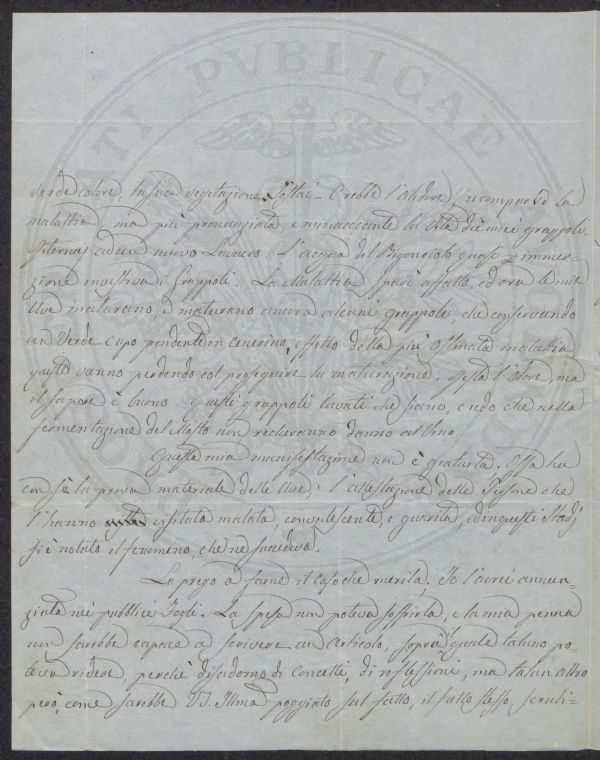 TI PVBLICAE
verde colore, la sua vegetazione. Sottaì - Crebbe l'alidore, ricomparve la
malattia ma più pronunziata, e minacciante la vita dei miei grappoli.
Ritornaj ad un nuovo Lavacro. L'acqua del Bigonciolo quasi immer-
zione mostrava i Grappoli. La Malattia sparì affatto, ed ora le mie
Uve maturano, e maturano ancora alcuni grappoli, che conservando
un Verde cupo pendente in cenerino, effetto della più ostinata malattia
vanno perdendo col proseguire la maturazione. Resta l'odore, ma
il sapore è buono. Questi grappoli lavati che siano, credo che nella
fermentazione del Mosto non recheranno danno al Vino.
Questa mia manifestazione non è gratuita. Essa ha
con sè la prova materiale delle Uve: l'attestazione delle Persone che
l'hanno visitata malata, convalescente, e guarita, ed in questi Stadj
si è notato il fenomeno, che ne succedeva.
La prego a farne il caso che merita. Io l'avrei annun-
ziata nei pubblici Fogli. La spesa non poteva soffrirla, e la mia penna
non sarebbe capace a scrivere un Articolo, sopra il quale taluno po-
teva ridere, perchè disadorno di Concetti, di riflessioni, ma talun altro
però, come sarebbe V.S. Illma poggiato sul fatto, il fatto stesso, scruti-